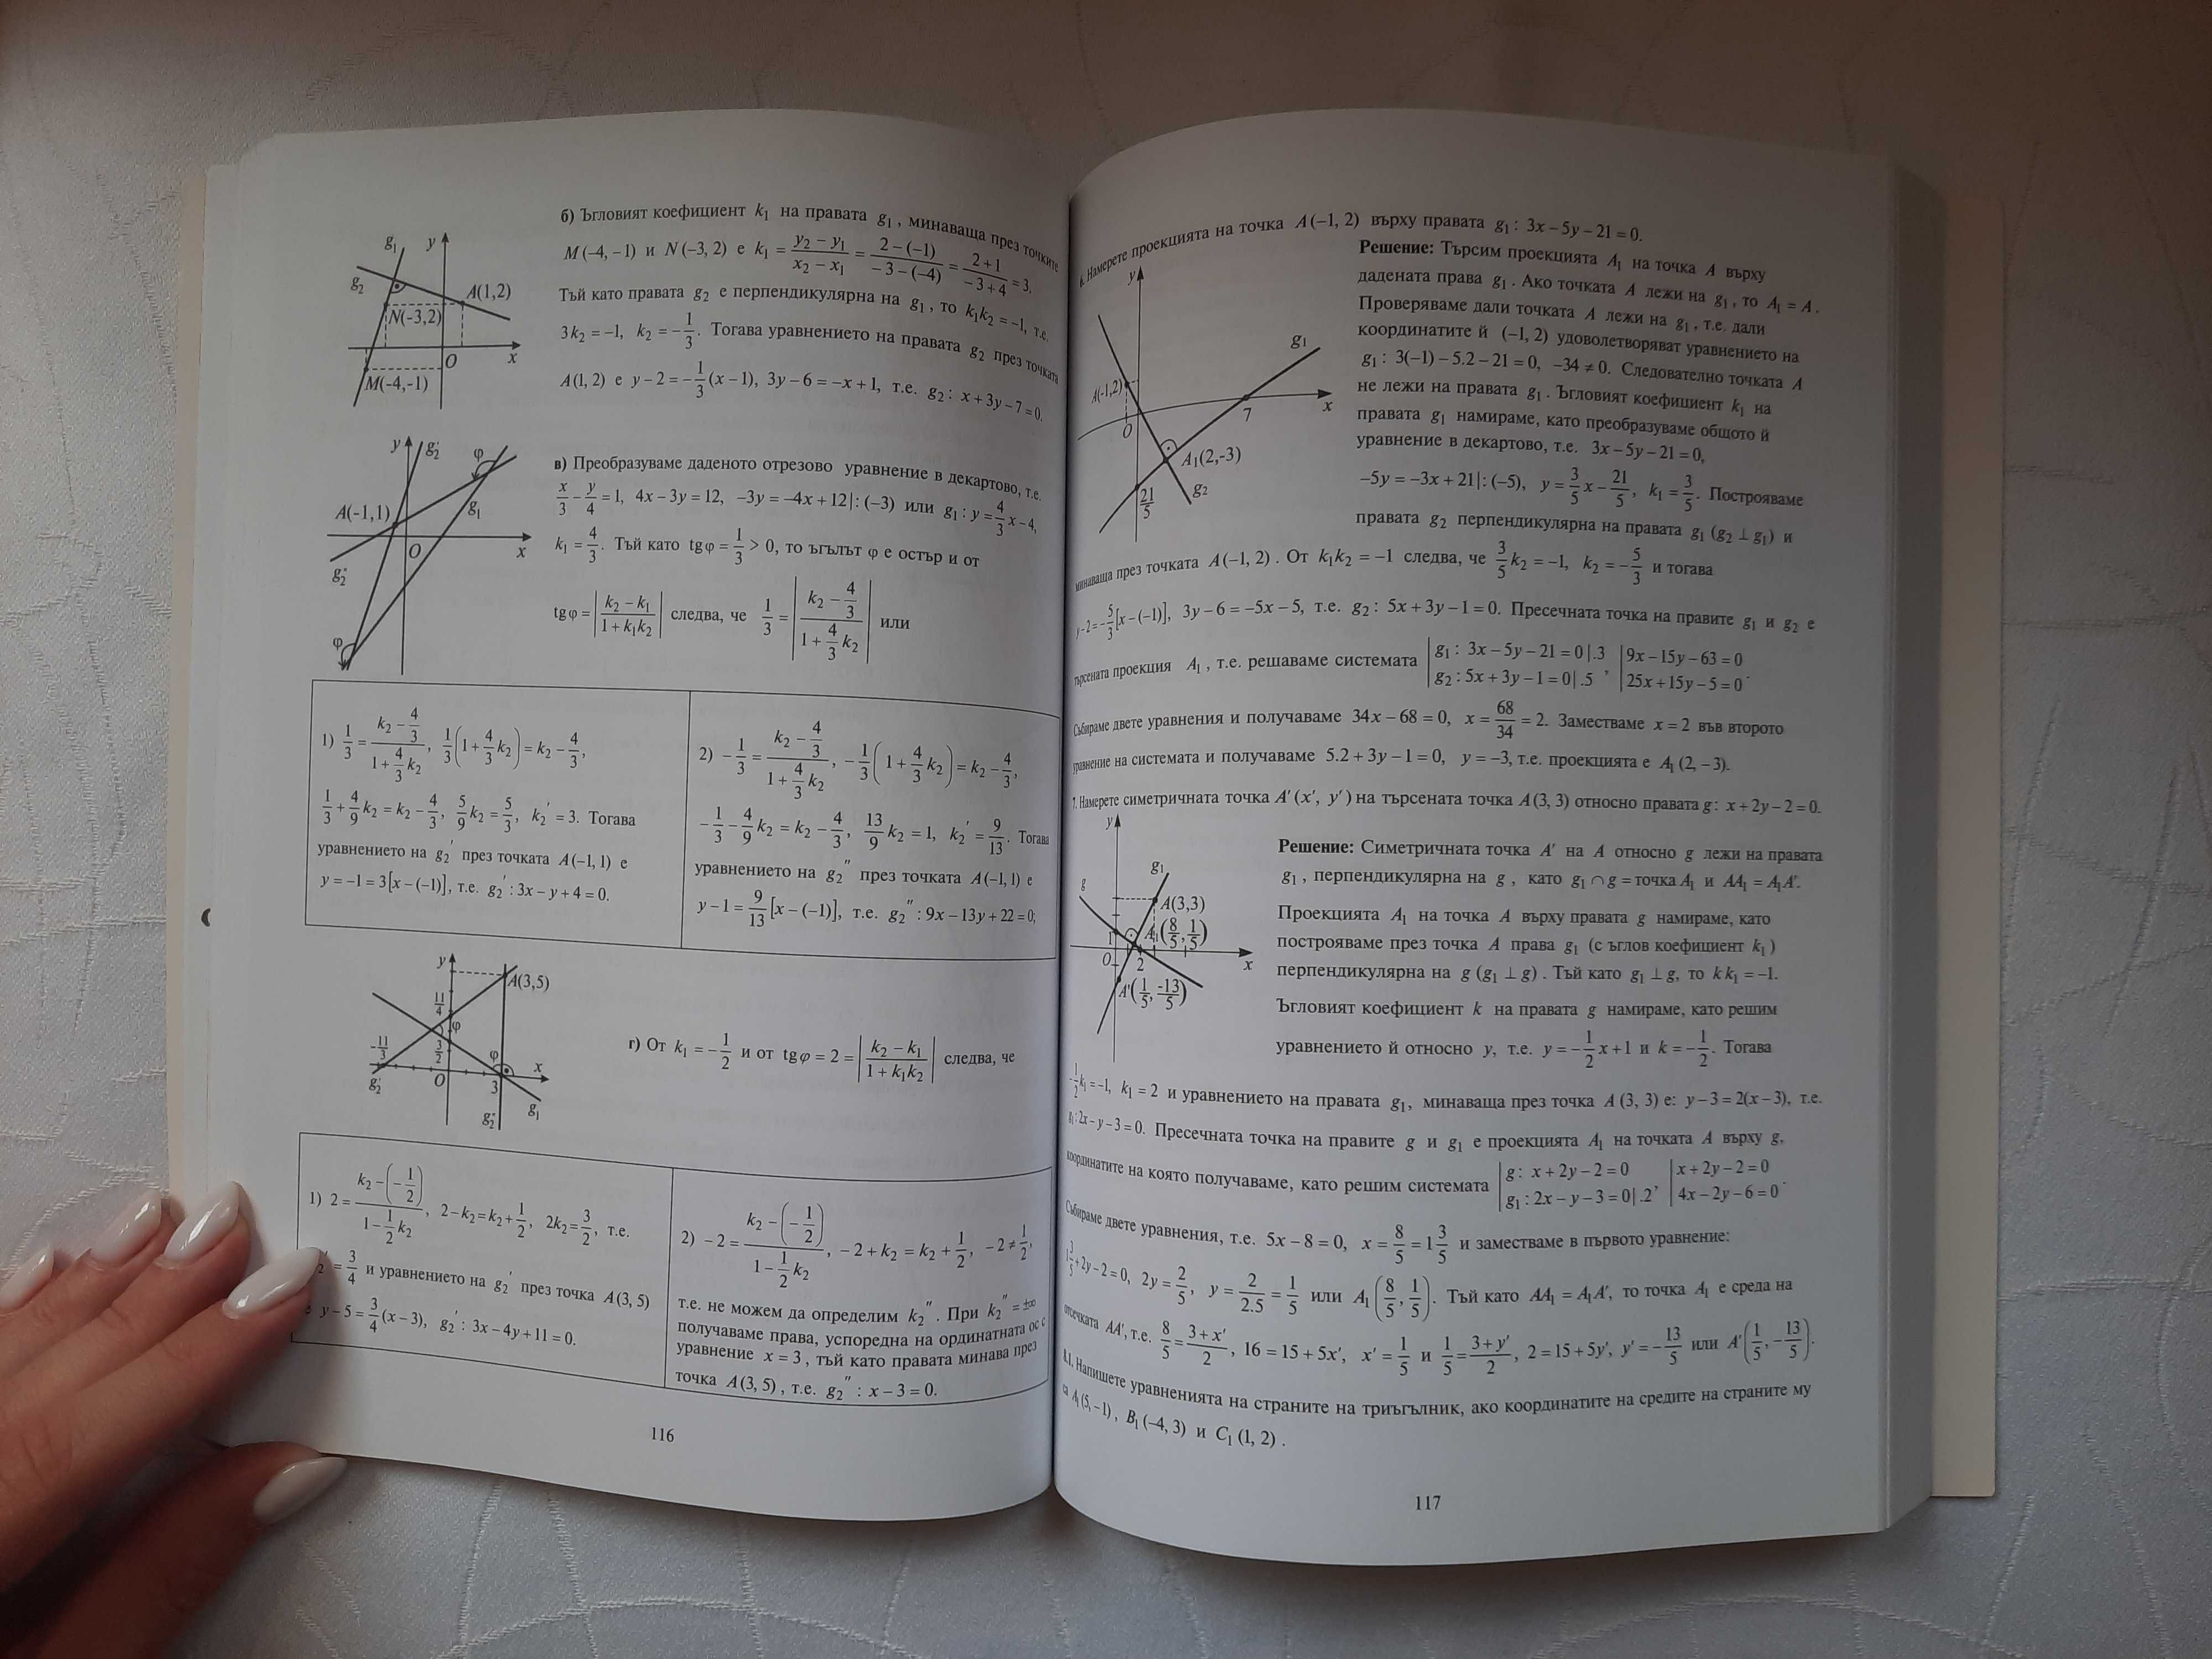 б) Ъгловият коефициент k₁ на правата g₁, минаваща през точките
M(−4, −1) и N(−3, 2) е k₁ = (y₂ − y₁)/(x₂ − x₁) = (2 − (−1))/(−3 − (−4)) = (2 + 1)/(−3 + 4) = 3.
Тъй като правата g₂ е перпендикулярна на g₁, то k₁k₂ = −1, т.е.
3k₂ = −1, k₂ = −1/3. Тогава уравнението на правата g₂ през точката
A(1, 2) е y − 2 = −1/3(x − 1), 3y − 6 = −x + 1, т.е. g₂: x + 3y − 7 = 0.
g₁ y
g₂
A(1,2)
N(-3,2)
O x
M(-4,-1)
в) Преобразуваме даденото отрезово уравнение в декартово, т.е.
x/3 − y/4 = 1, 4x − 3y = 12, −3y = −4x + 12|: (−3) или g₁: y = 4/3x − 4,
k₁ = 4/3. Тъй като tgφ = 1/3 > 0, то ъгълът φ е остър и от
tgφ = |(k₂ − k₁)/(1 + k₁k₂)| следва, че 1/3 = |(k₂ − 4/3)/(1 + 4/3 k₂)| или
y g₂′ φ
A(-1,1) g₁
O x
g₂″
φ
1) 1/3 = (k₂ − 4/3)/(1 + 4/3 k₂), 1/3(1 + 4/3 k₂) = k₂ − 4/3,
1/3 + 4/9 k₂ = k₂ − 4/3, 5/9 k₂ = 5/3, k₂′ = 3. Тогава
уравнението на g₂′ през точката A(−1, 1) е
y = −1 = 3[x − (−1)], т.е. g₂′: 3x − y + 4 = 0.
2) −1/3 = (k₂ − 4/3)/(1 + 4/3 k₂), −1/3(1 + 4/3 k₂) = k₂ − 4/3,
−1/3 − 4/9 k₂ = k₂ − 4/3, 13/9 k₂ = 1, k₂′ = 9/13. Тогава
уравнението на g₂″ през точката A(−1, 1) е
y − 1 = 9/13[x − (−1)], т.е. g₂″: 9x − 13y + 22 = 0;
y
A(3,5)
11/4
φ
-11/3 3/2 φ x
g₂′ O 3
g₂″ g₁
г) От k₁ = −1/2 и от tgφ = 2 = |(k₂ − k₁)/(1 + k₁k₂)| следва, че
1) 2 = (k₂ − (−1/2))/(1 − 1/2 k₂), 2 − k₂ = k₂ + 1/2, 2k₂ = 3/2, т.е.
= 3/4 и уравнението на g₂′ през точка A(3, 5)
y − 5 = 3/4(x − 3), g₂′: 3x − 4y + 11 = 0.
2) −2 = (k₂ − (−1/2))/(1 − 1/2 k₂), −2 + k₂ = k₂ + 1/2, −2 ≠ 1/2,
т.е. не можем да определим k₂″. При k₂″ = ±∞
получаваме права, успоредна на ординатната ос с
уравнение x = 3, тъй като правата минава през
точка A(3, 5), т.е. g₂″: x − 3 = 0.
116
6. Намерете проекцията на точка A(−1, 2) върху правата g₁: 3x − 5y − 21 = 0.
Решение: Търсим проекцията A₁ на точка A върху
дадената права g₁. Ако точката A лежи на g₁, то A₁ = A.
Проверяваме дали точката A лежи на g₁, т.е. дали
координатите ѝ (−1, 2) удоволетворяват уравнението на
g₁: 3(−1) − 5.2 − 21 = 0, −34 ≠ 0. Следователно точката A
не лежи на правата g₁. Ъгловият коефициент k₁ на
правата g₁ намираме, като преобразуваме общото ѝ
уравнение в декартово, т.е. 3x − 5y − 21 = 0,
−5y = −3x + 21|: (−5), y = 3/5x − 21/5, k₁ = 3/5. Построяваме
правата g₂ перпендикулярна на правата g₁ (g₂ ⊥ g₁) и
y
g₁
A(-1,2)
7 x
O
A₁(2,-3)
21/5 g₂
минаваща през точката A(−1, 2). От k₁k₂ = −1 следва, че 3/5 k₂ = −1, k₂ = −5/3 и тогава
y − 2 = −5/3[x − (−1)], 3y − 6 = −5x − 5, т.е. g₂: 5x + 3y − 1 = 0. Пресечната точка на правите g₁ и g₂ е
търсената проекция A₁, т.е. решаваме системата | g₁: 3x − 5y − 21 = 0|.3 | 9x − 15y − 63 = 0
| g₂: 5x + 3y − 1 = 0|.5 , | 25x + 15y − 5 = 0 .
Събираме двете уравнения и получаваме 34x − 68 = 0, x = 68/34 = 2. Заместваме x = 2 във второто
уравнение на системата и получаваме 5.2 + 3y − 1 = 0, y = −3, т.е. проекцията е A₁(2, −3).
7. Намерете симетричната точка A′(x′, y′) на търсената точка A(3, 3) относно правата g: x + 2y − 2 = 0.
y
g g₁
A(3,3)
A₁(8/5, 1/5)
1
O 2 x
A′(1/5, -13/5)
Решение: Симетричната точка A′ на A относно g лежи на правата
g₁, перпендикулярна на g, като g₁ ∩ g = точка A₁ и AA₁ = A₁A′.
Проекцията A₁ на точка A върху правата g намираме, като
построяваме през точка A права g₁ (с ъглов коефициент k₁)
перпендикулярна на g (g₁ ⊥ g). Тъй като g₁ ⊥ g, то k k₁ = −1.
Ъгловият коефициент k на правата g намираме, като решим
уравнението ѝ относно y, т.е. y = −1/2x + 1 и k = −1/2. Тогава
−1/2 k₁ = −1, k₁ = 2 и уравнението на правата g₁, минаваща през точка A (3, 3) е: y − 3 = 2(x − 3), т.е.
g₁: 2x − y − 3 = 0. Пресечната точка на правите g и g₁ е проекцията A₁ на точката A върху g,
координатите на която получаваме, като решим системата | g: x + 2y − 2 = 0 | x + 2y − 2 = 0
| g₁: 2x − y − 3 = 0|.2 , | 4x − 2y − 6 = 0 .
Събираме двете уравнения, т.е. 5x − 8 = 0, x = 8/5 = 1 3/5 и заместваме в първото уравнение:
1 3/5 + 2y − 2 = 0, 2y = 2/5, y = 2/2.5 = 1/5 или A₁(8/5, 1/5). Тъй като AA₁ = A₁A′, то точка A₁ е среда на
отсечката AA′, т.е. 8/5 = (3 + x′)/2, 16 = 15 + 5x′, x′ = 1/5 и 1/5 = (3 + y′)/2, 2 = 15 + 5y′, y′ = −13/5 или A′(1/5, −13/5).
8.1. Напишете уравненията на страните на триъгълник, ако координатите на средите на страните му
са A₁(5, −1), B₁(−4, 3) и C₁(1, 2).
117